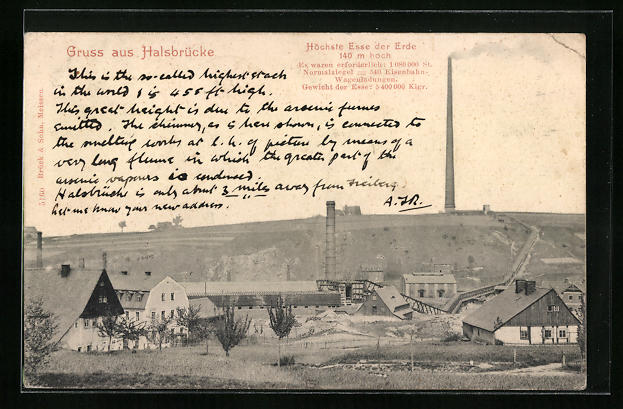 Gruss aus Halsbrücke
Höchste Esse der Erde
140 m hoch
Es waren erforderlich: 1 080 000 St.
Normalziegel = 540 Eisenbahn-
Wagenladungen.
Gewicht der Esse: 5 400 000 Klgr.
This is the so-called highest stack
in the world & is 455 ft high.
This great height is due to the arsenic fumes
emitted. The chimney, as is here shown, is connected to
the smelting works at l.h. of picture by means of a
very long flume in which the greater part of the
arsenic vapours is condensed.
Halsbrücke is only about 3 miles away from Freiberg.
Let me know your new address.
Brück & Sohn, Meissen.